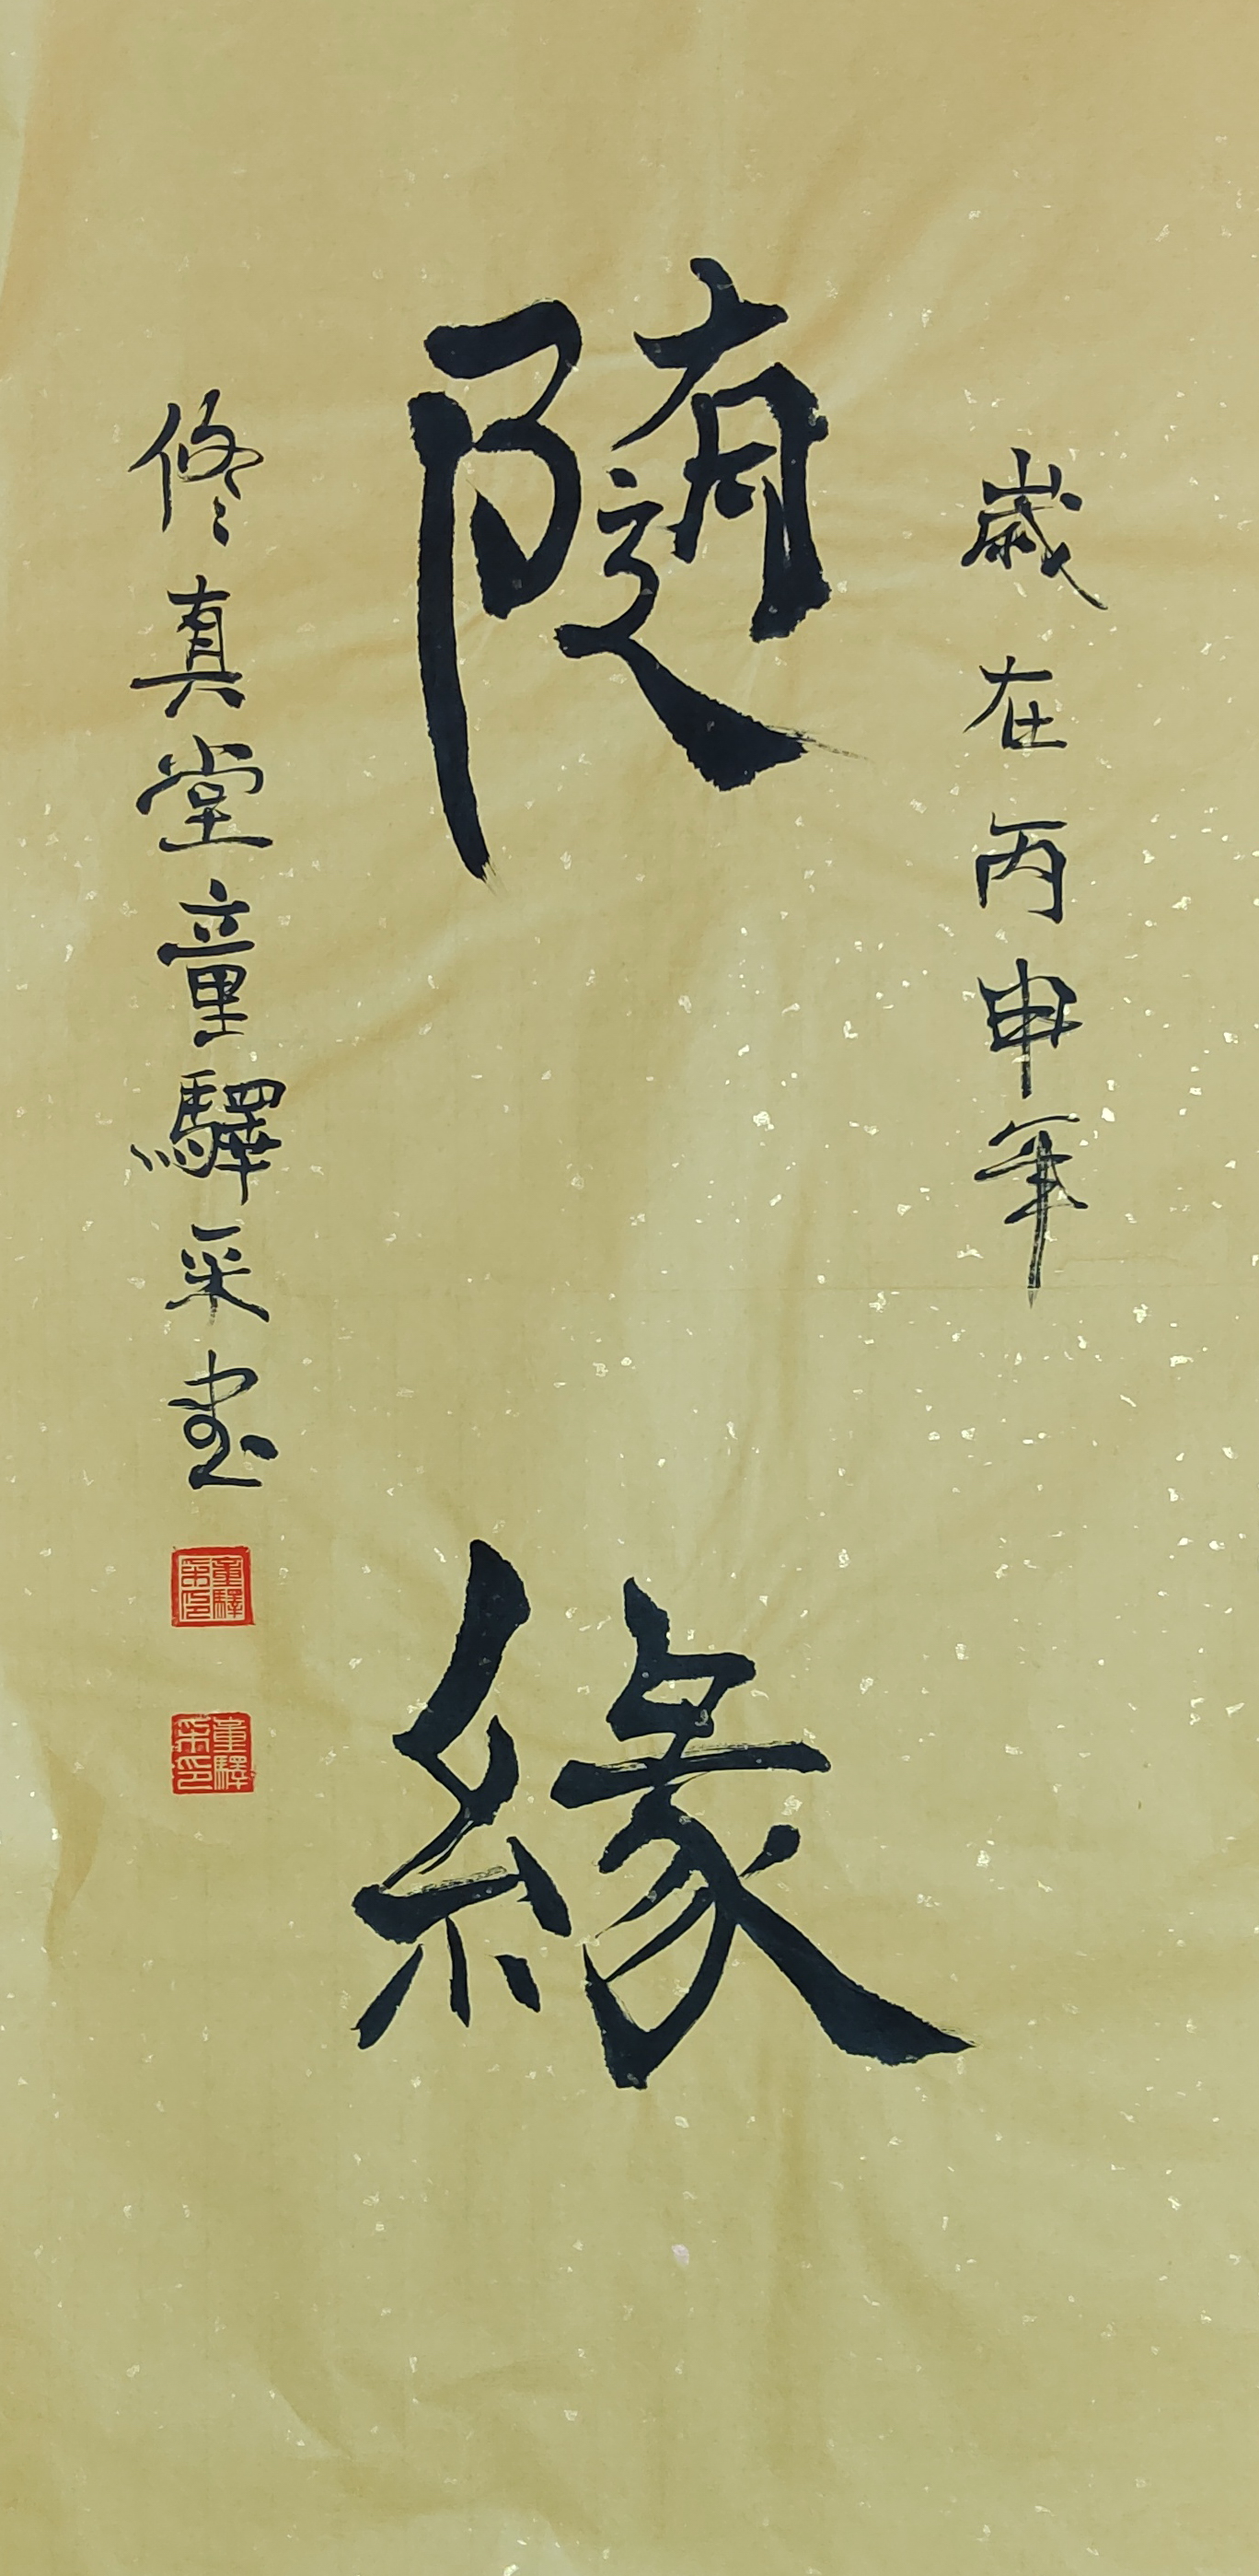 歲在丙申年
隨緣
修真堂童驛采書
童驛采印
童驛采印